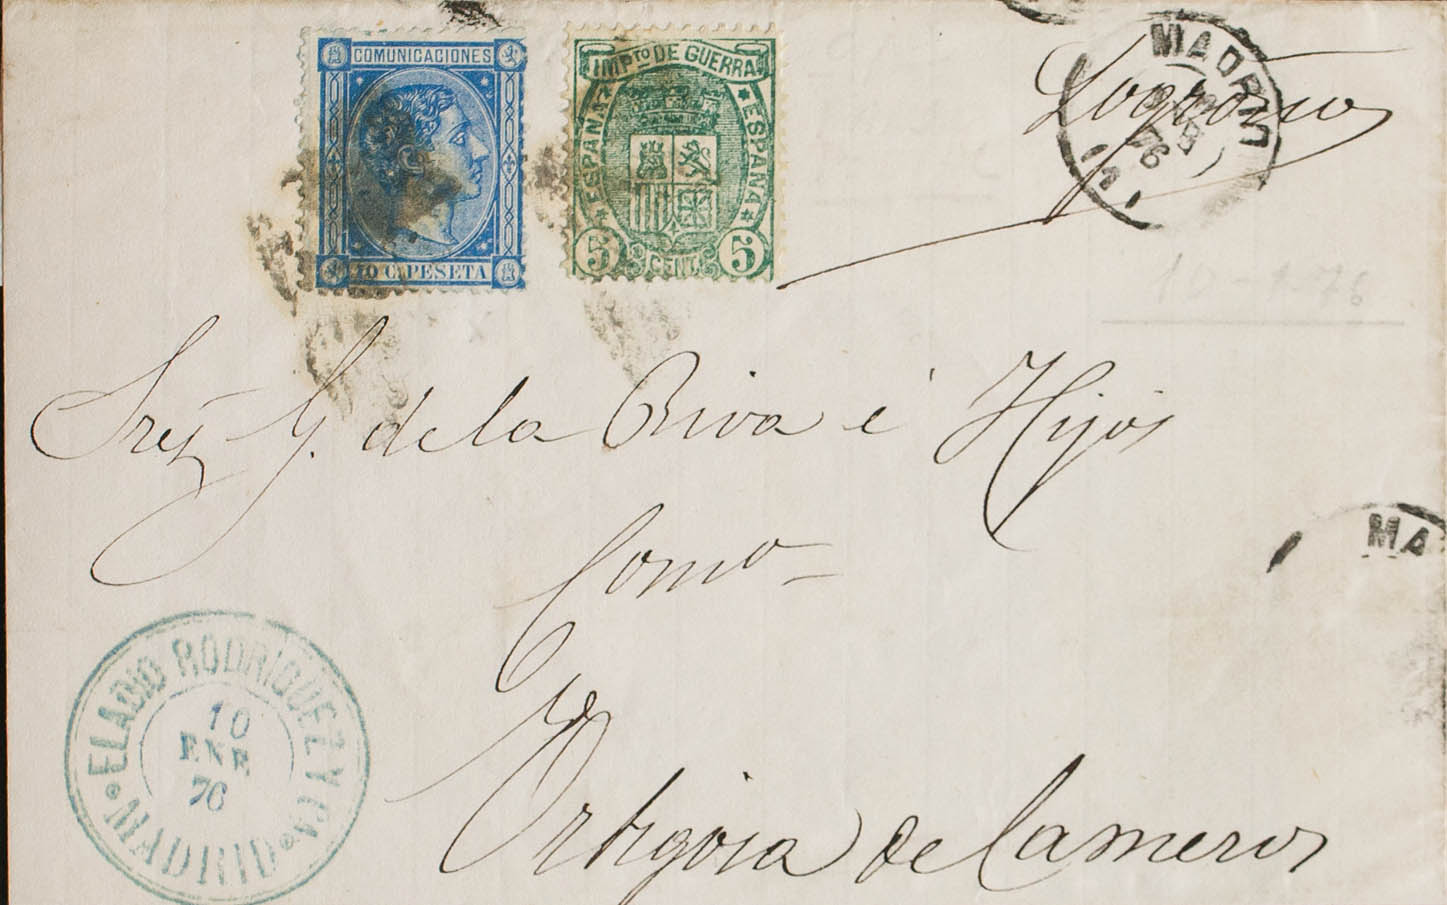 COMUNICACIONES
10 C. PESETA
IMPto DE GUERRA
ESPAÑA
ESPAÑA
5 CENT. 5
MADRID
76
Logroño
10-1-76
Sres G. de la Riva é Hijos
Como
Ortigosa de Cameros
MA
ELADIO RODRIGUEZ Y CA
10
ENE
76
MADRID